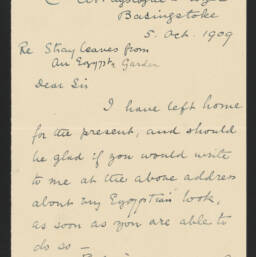 Basingstoke
5. Oct. 1909
Re Stray leaves from
An Egypt^n Garden
Dear Sir
I have left home
for the present, and should
be glad if you would write
to me at the above address
about my Egyptian book,
as soon as you are able to
do so —